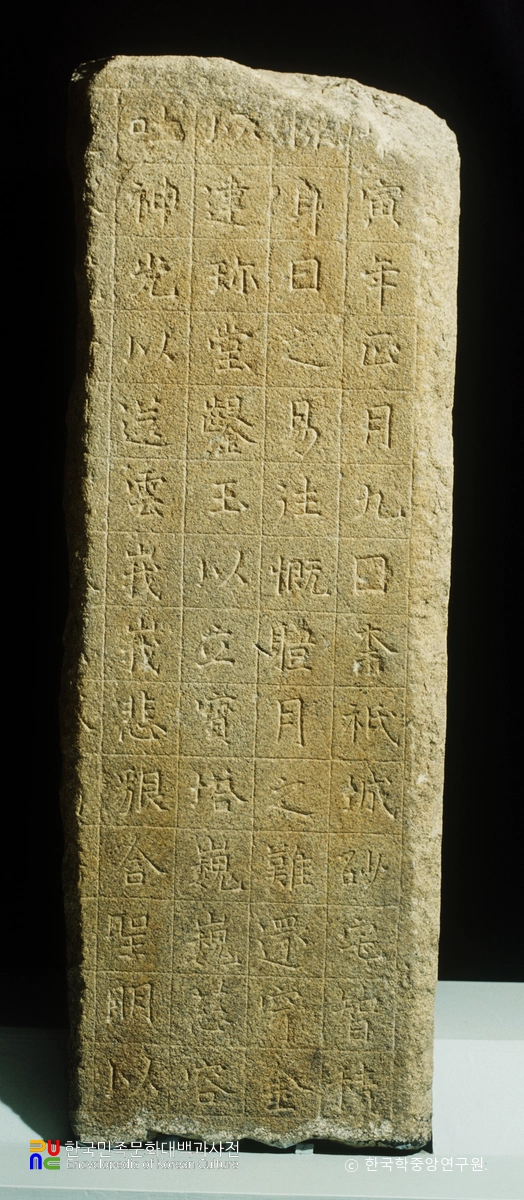 寅年正月九日奈祇城砂宅智積
慷身日之易往慨體月之難還穿金
以建珍堂鑿玉以立寶塔巍巍慈容
吐神光以送雲峩峩悲貌含聖明以
한국민족문화대백과사전
Encyclopedia of Korean Culture
© 한국학중앙연구원.